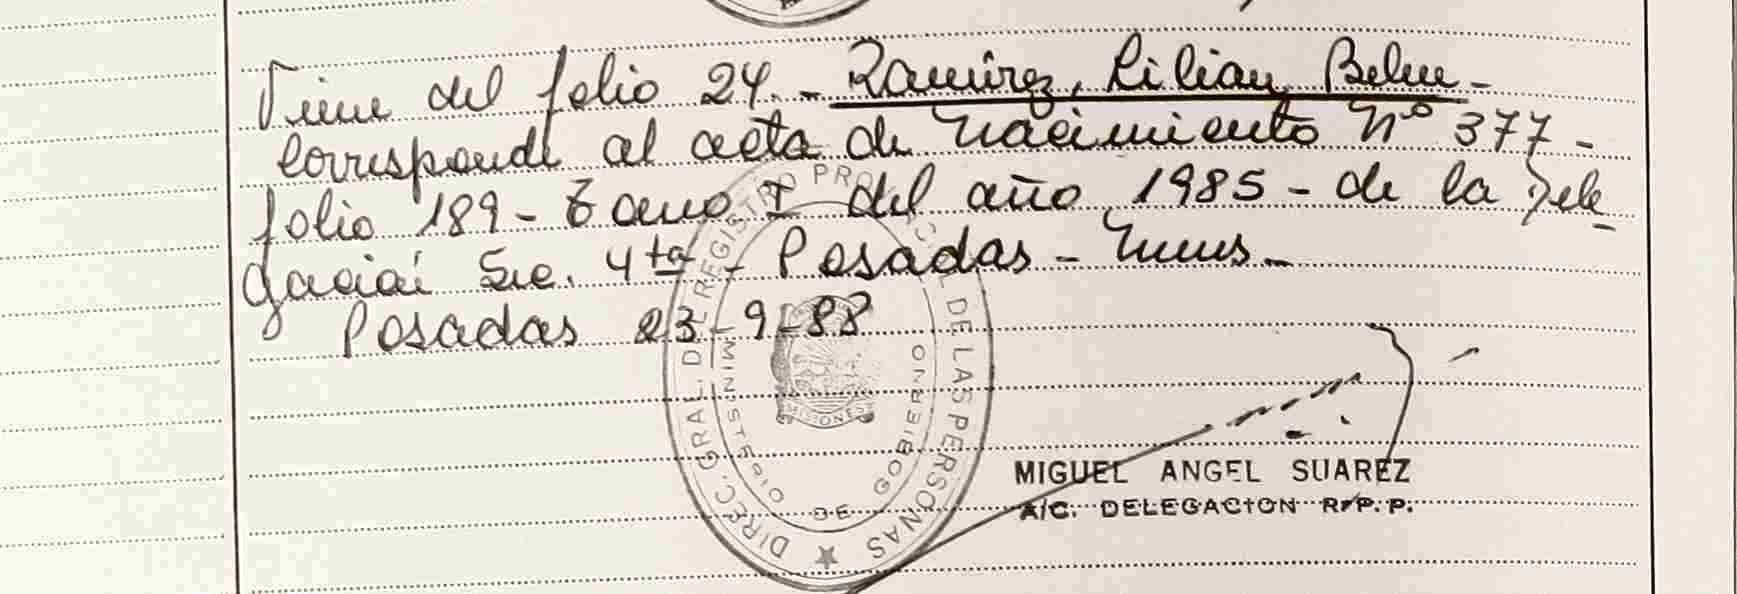 Viene del folio 24. - Ramirez, Lilian Belen -
Corresponde al acta de Nacimiento Nº 377 -
folio 189 - Tomo I del año 1985 - de la Dele
gación Sec. 4ta - Posadas - Mnes -
Posadas 23-9-88
DIREC. GRAL. DEL REGISTRO PROVINCIAL DE LAS PERSONAS
MINISTERIO DE GOBIERNO
MISIONES
MIGUEL ANGEL SUAREZ
A/C. DELEGACION R.P.P.